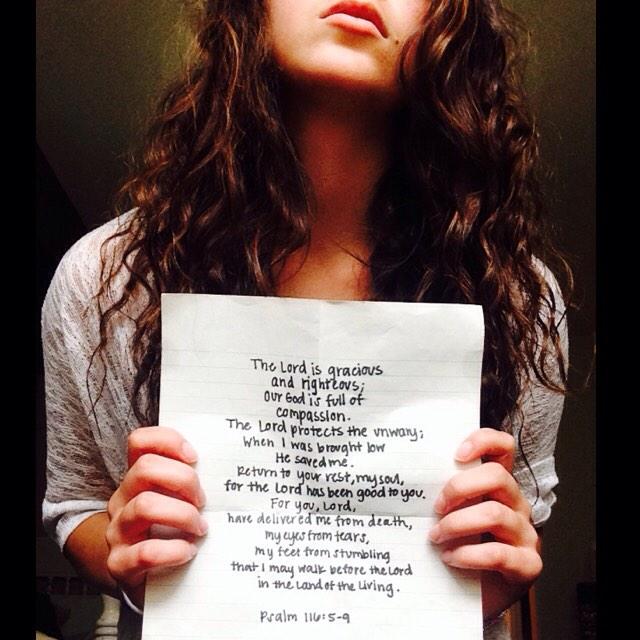 The Lord is gracious
and righteous;
our God is full of
compassion.
The Lord protects the unwary;
when I was brought low
He saved me.
Return to your rest, my soul,
for the Lord has been good to you.
For you, Lord,
have delivered me from death,
my eyes from tears,
my feet from stumbling
that I may walk before the Lord
in the Land of the Living.
Psalm 116:5-9